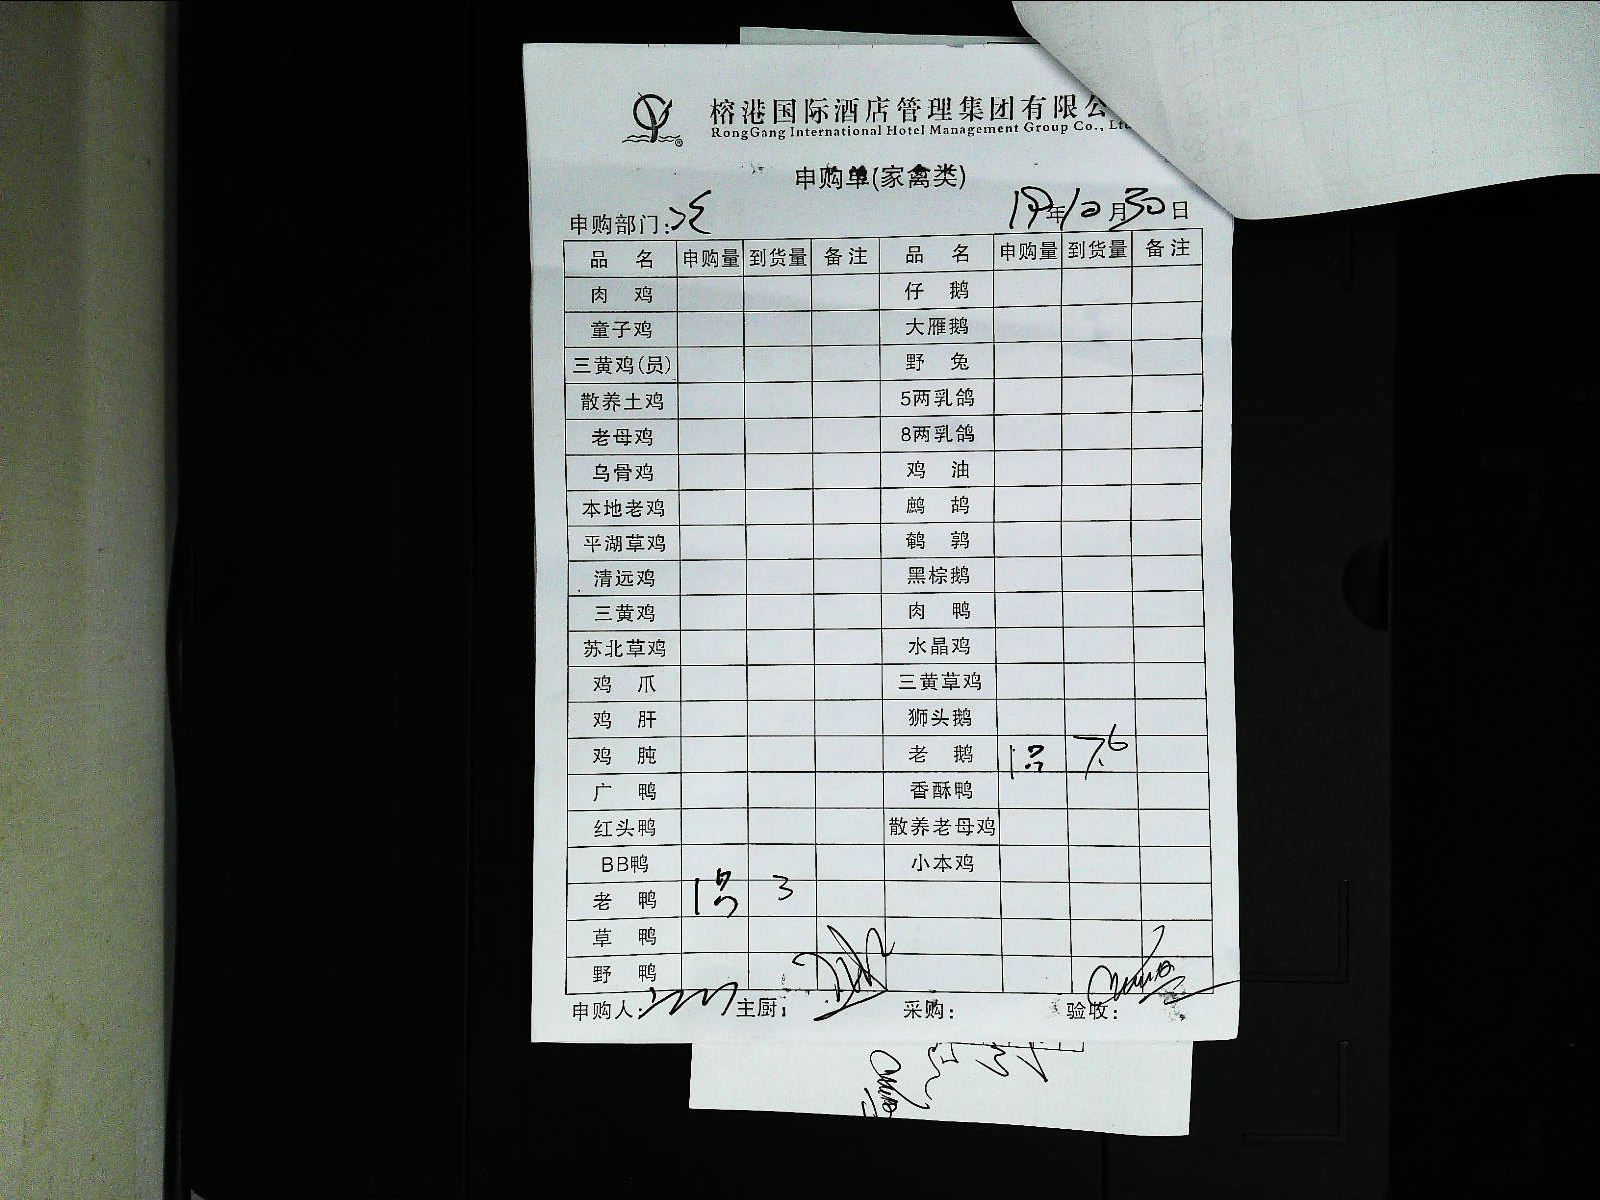 榕港国际酒店管理集团有限公
RongGang International Hotel Management Group Co., Ltd
申购单(家禽类)
申购部门: 19年10月30日
品名 申购量 到货量 备注 品名 申购量 到货量 备注
肉鸡 仔鹅
童子鸡 大雁鹅
三黄鸡(员) 野兔
散养土鸡 5两乳鸽
老母鸡 8两乳鸽
乌骨鸡 鸡油
本地老鸡 鹧鸪
平湖草鸡 鹌鹑
清远鸡 黑棕鹅
三黄鸡 肉鸭
苏北草鸡 水晶鸡
鸡爪 三黄草鸡
鸡肝 狮头鹅
鸡肫 老鹅 1只 7.6
广鸭 香酥鸭
红头鸭 散养老母鸡
BB鸭 小本鸡
老鸭 1只 3
草鸭
野鸭
申购人: 主厨: 采购: 验收: